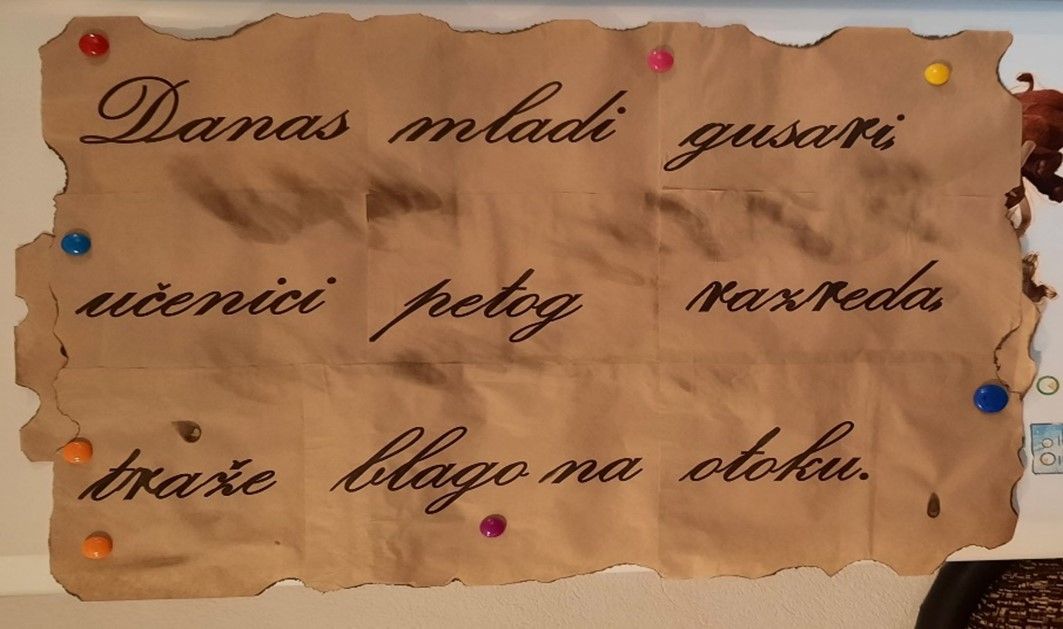 Danas mladi gusari,
učenici petog razreda,
traže blago na otoku.